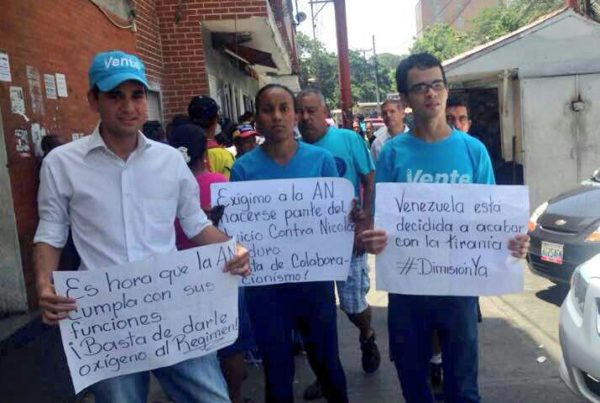 Vente
Es hora que la AN
cumpla con sus
funciones
¡Basta de darle
oxígeno al Regimen!
Exigimo a la AN
hacerse parte del
Juicio Contra Nicolas
duro
ta de Colabora-
cionismo?
Vente
Venezuela está
decidida a acabar
con la tiranía
#DimisiónYa